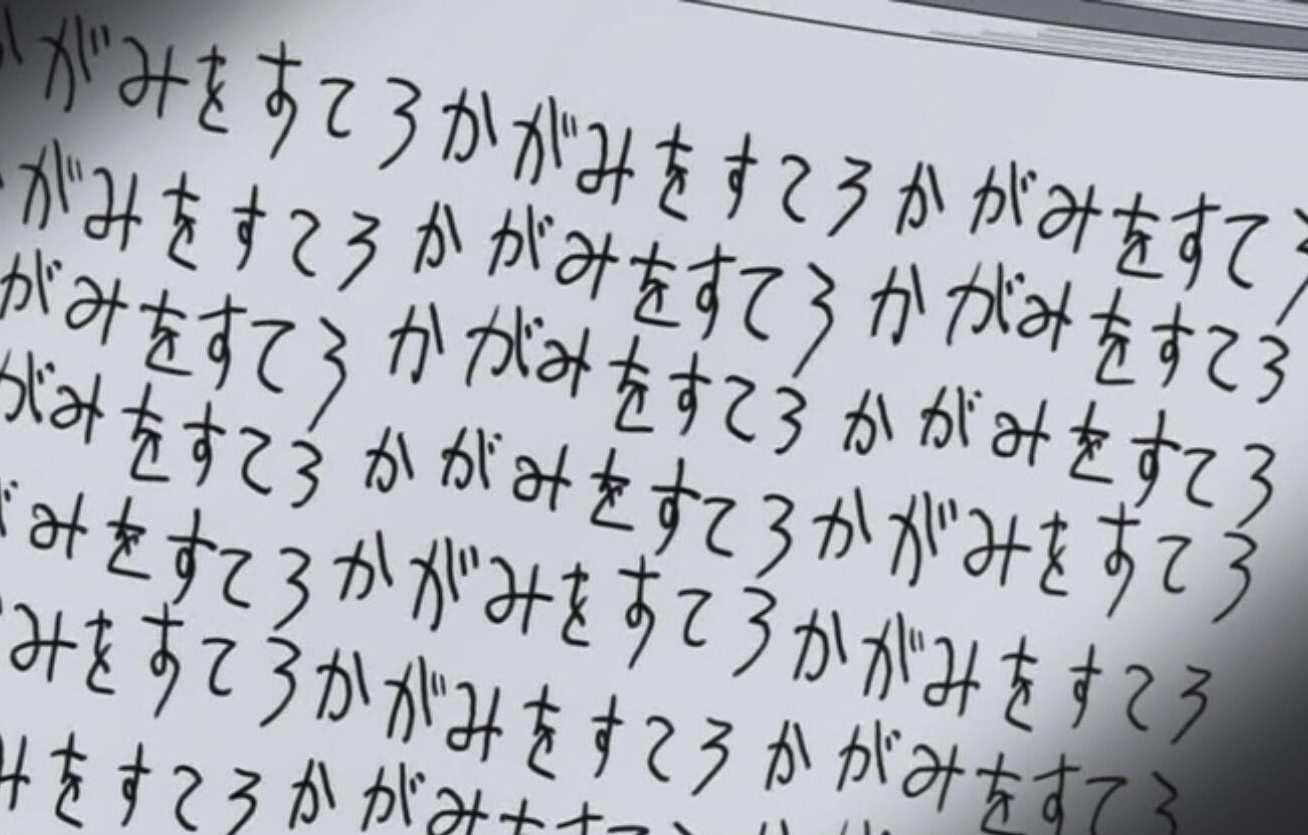 かがみをすてろかがみをすてろかがみをすてろ
がみをすてろかがみをすてろかがみをすてろ
がみをすてろかがみをすてろかがみをすてろ
がみをすてろかがみをすてろかがみをすてろ
がみをすてろかがみをすてろかがみをすてろ
みをすてろかがみをすてろかがみをすてろ
みをすてろかがみ